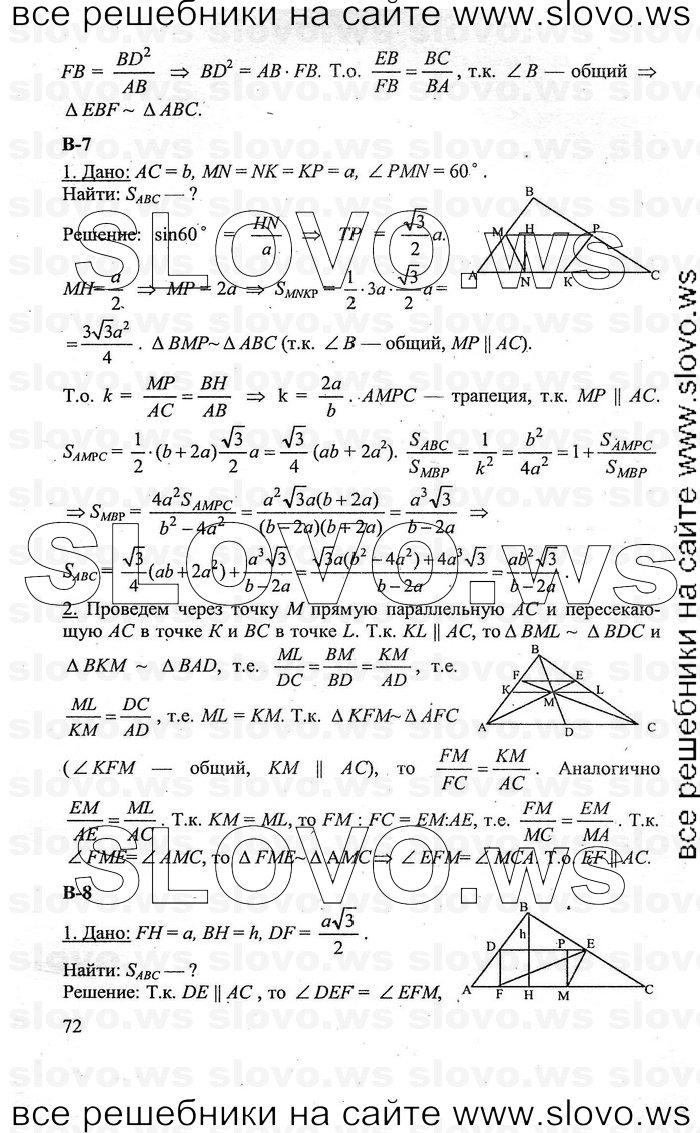 все решебники на сайте www.slovo.ws
FB = BD²/AB ⇒ BD² = AB · FB. Т.о. EB/FB = BC/BA, т.к. ∠ B — общий ⇒
Δ EBF ~ Δ ABC.
В-7
1. Дано: AC = b, MN = NK = KP = a, ∠ PMN = 60°.
Найти: S_ABC — ?
Решение: sin60° = HN/a ⇒ TP = √3/2 a.
MH = a/2 ⇒ MP = 2a ⇒ S_MNKP = 1/2 · 3a · √3/2 a =
= 3√3a²/4 . Δ BMP ~ Δ ABC (т.к. ∠ B — общий, MP ∥ AC).
Т.о. k = MP/AC = BH/AB ⇒ k = 2a/b . AMPC — трапеция, т.к. MP ∥ AC.
S_AMPC = 1/2 · (b + 2a) √3/2 a = √3/4 (ab + 2a²). S_ABC/S_MBP = 1/k² = b²/4a² = 1 + S_AMPC/S_MBP
⇒ S_MBP = 4a²S_AMPC/(b² – 4a²) = a²√3a(b + 2a)/((b – 2a)(b + 2a)) = a³√3/(b – 2a) ⇒
S_ABC = √3/4 (ab + 2a²) + a³√3/(b – 2a) = (√3a(b² – 4a²) + 4a³√3)/(b – 2a) = ab²√3/(b – 2a) .
2. Проведем через точку M прямую параллельную AC и пересекаю-
щую AC в точке K и BC в точке L. Т.к. KL ∥ AC, то Δ BML ~ Δ BDC и
Δ BKM ~ Δ BAD, т.е. ML/DC = BM/BD = KM/AD , т.е.
ML/KM = DC/AD , т.е. ML = KM. Т.к. Δ KFM ~ Δ AFC
(∠ KFM — общий, KM ∥ AC), то FM/FC = KM/AC . Аналогично
EM/AE = ML/AC . Т.к. KM = ML, то FM : FC = EM:AE, т.е. FM/MC = EM/MA . Т.к.
∠ FME = ∠ AMC, то Δ FME ~ Δ AMC ⇒ ∠ EFM = ∠ MCA. Т.о. EF ∥ AC.
В-8
1. Дано: FH = a, BH = h, DF = a√3/2 .
Найти: S_ABC — ?
Решение: Т.к. DE ∥ AC , то ∠ DEF = ∠ EFM,
72
B
M H P
A N K C
B
F E
K M L
A D C
B
h
D P E
A F H M C
SLOVO.ws
SLOVO.ws
SLOVO.ws
все решебники на сайте www.slovo.ws
все решебники на сайте www.slovo.ws